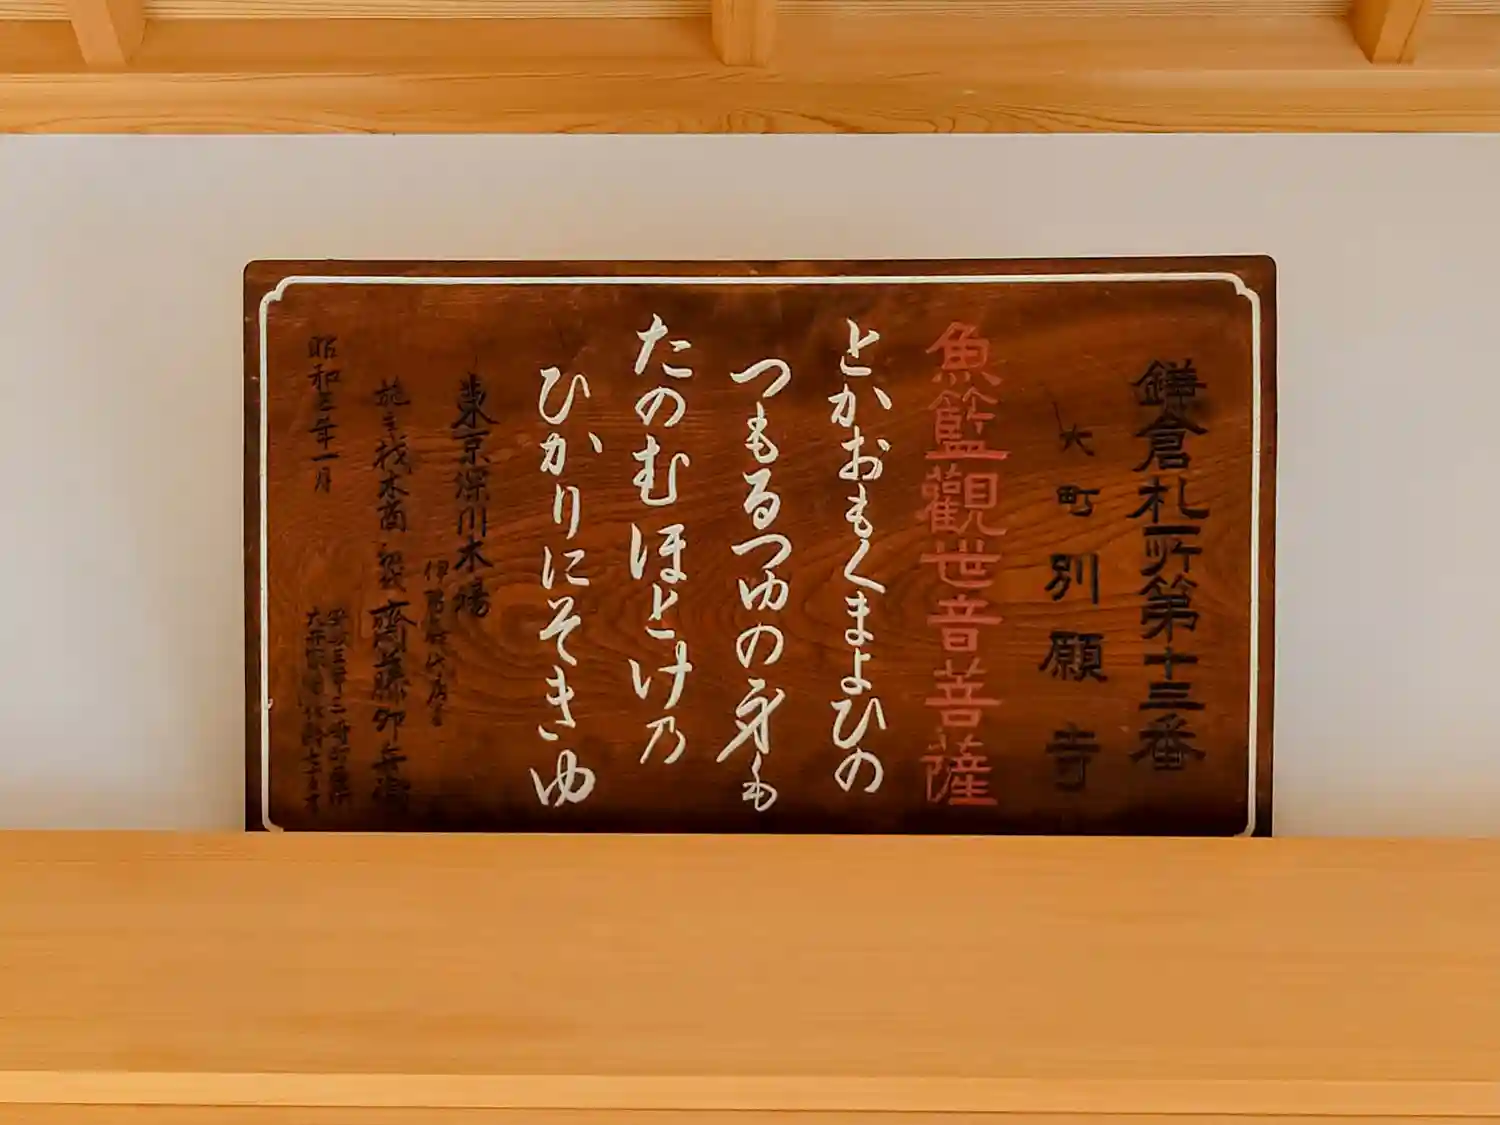 鎌倉札所第十三番
大町別願寺
魚籃觀世音菩薩
とかおもくまよひの
つもるつゆの身も
たのむほとけ乃
ひかりにそきゆ
東京深川木場
施主 木商 齋藤卯兵衛
昭和三年一月